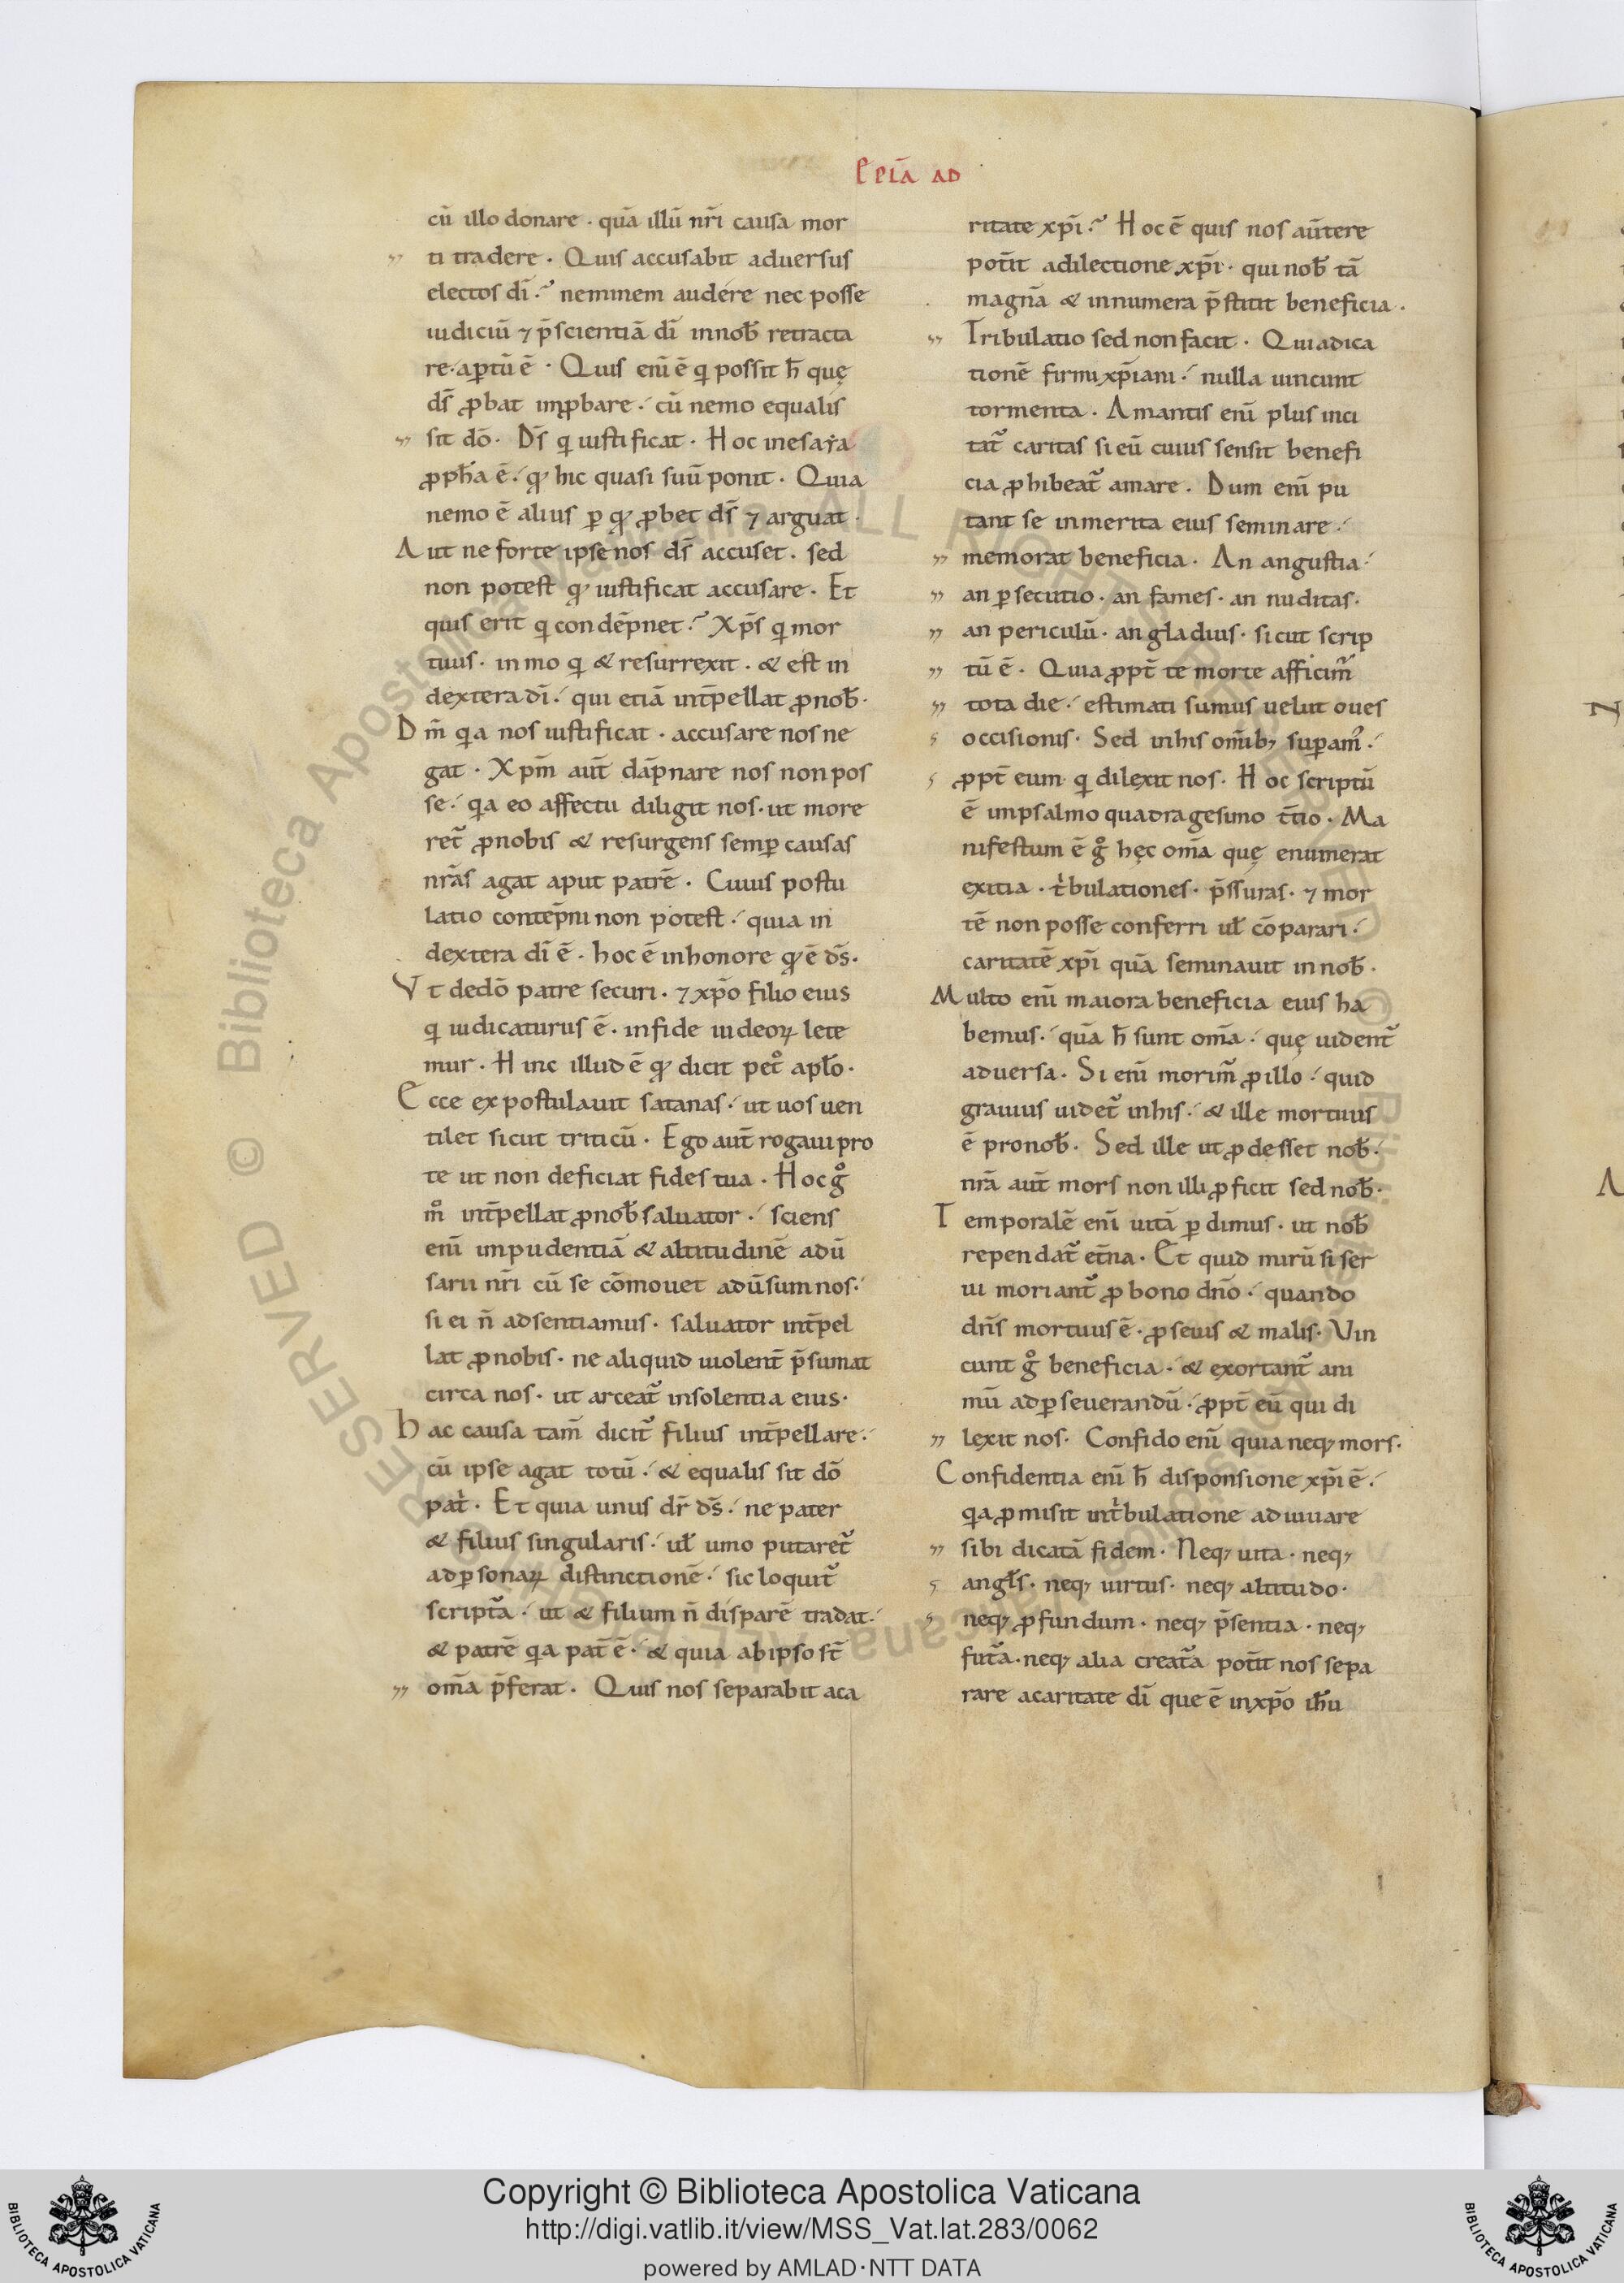 Epła ad
cū illo donare · quā illū nr̄i causa mor
ti tradere · Quis accusabit aduersus
electos dī·? neminem audere nec posse
iudiciū ⁊ p̄scientiā dī innob̄ retracta
re· aꝑtū ē · Quis enī ē q̄ possit h̄ quę
ds̄ ꝓbat inꝓbare· cū nemo equalis
sit dō · Ds̄ q̄ iustificat · Hoc inesaẏa
ꝓph̄a ē· qđ hic quasi suū ponit · Quia
nemo ē alius ꝑ qđ ꝓbet ds̄ ⁊ arguat ·
Aut ne forte ipse nos ds̄ accuset · sed
non potest qđ iustificat accusare · Et
quis erit q̄ condēpnet·? Xp̄s q̄ mor
tuus · inmo q̄ & resurrexit · & est in
dextera dī· qui etiā int̄pellat ꝓnob̄ ·
Dm̄ q̄a nos iustificat · accusare nos ne
gat · Xpm̄ aut̄ dāpnare nos non pos
se· q̄a eo affectu diligit nos · ut more
ret̄ ꝓnobis & resurgens semꝑ causas
nr̄as agat aput patrē · Cuius postu
latio contēpni non potest· quia in
dextera dī ē · hoc ē inhonore qđ ē ds̄ ·
Vt dedō patre securi · ⁊ xp̄o filio eius
q̄ iudicaturus ē · infide iudeoꝝ lete
mur · Hinc illud ē qđ dicit pet° apło ·
Ecce expostulauit satanas· ut uos uen
tilet sicut triticū · Ego aut̄ rogaui pro
te ut non deficiat fides tua · Hoc g°
m° int̄pellat ꝓnob̄ saluator· sciens
enī impudentiā & altitudinē adū
sarii nr̄i cū se cōmouet adūsum nos·
si ei n̄ adsentiamus · saluator int̄pel
lat ꝓnobis · ne aliquid uiolent̄ p̄sumat
circa nos · ut arceat̄ insolentia eius ·
hac causa tam̄ dicit̄ filius int̄pellare·
cū ipse agat totū· & equalis sit dō
patⁱ · Et quia unus dr̄ ds̄· ne pater
& filius singularis· uł unio putaret̄
adꝑsonaꝝ distinctionē· sic loquit̄
script̄a· ut & filium n̄ disparē tradat·
& patrē q̄a pat̄ ē· & quia abipso st̄
om̄a p̄ferat · Quis nos separabit aca
ritate xp̄i·? Hoc ē quis nos aūtere
pot̄it adilectione xp̄i · qui nob̄ tā
magnā & innumera p̄stitit beneficia ·
Tribulatio sed non facit · Quiadica
tionē firmi xp̄iani· nulla uincunt
tormenta · Amantis enī plus inci
tat̄ caritas si eū cuius sensit benefi
cia ꝓhibeat̄ amare · Dum enī pu
tant se inmerita eius seminare·
memorat beneficia · An angustia·
an ꝑsecutio · an fames · an nuditas ·
an periculū · an gladius · sicut scrip
tū ē · Quia ꝓpt̄ te morte afficim̄
tota die· estimati sumus uelut oues
occisionis · Sed inhis om̄ibꝫ suꝑam᾽·
ꝓpt̄ eum q̄ dilexit nos · Hoc scriptū
ē inpsalmo quadragesimo t̄tio · Ma
nifestum ē g° hęc om̄a quę enumerat
exitia · tⁱbulationes · p̄ssuras · ⁊ mor
tē non posse conferri uł cōparari·
caritatē xp̄i quā seminauit innob̄ ·
Multo enī maiora beneficia eius ha
bemus· quā h̄ sunt om̄a· quę uident̄
aduersa · Si enī morim̄ ꝓillo· quid
grauius uidet̄ inhis· & ille mortuus
ē pronob̄ · Sed ille ut ꝓdesset nob̄·
nr̄a aut̄ mors non illi ꝓficit sed nob̄ ·
Temporalē enī uitā ꝑdimus · ut nob̄
rependat̄ et̄na · Et quid mirū si ser
ui moriant̄ ꝓ bono dn̄o· quando
dn̄s mortuus ē · ꝓ seuis & malis · Vin
cunt g° beneficia· & exortant̄ ani
mū adꝑseuerandū· ꝓpt̄ eū qui di
lexit nos · Confido enī quia neqꝫ mors ·
Confidentia enī h̄ disponsione xp̄i ē·
q̄a ꝓmisit intⁱbulatione adiuuare
sibi dicatā fidem · Neqꝫ uita · neqꝫ
angłs · neqꝫ uirtus · neqꝫ altitudo ·
neqꝫ ꝓfundum · neqꝫ p̄sentia · neqꝫ
fut̄a · neqꝫ alia creat̄a pot̄it nos sepa
rare acaritate dī que ē inxp̄o ih̄u
Copyright © Biblioteca Apostolica Vaticana
http://digi.vatlib.it/view/MSS_Vat.lat.283/0062
powered by AMLAD·NTT DATA
BIBLIOTECA APOSTOLICA VATICANA
BIBLIOTECA APOSTOLICA VATICANA